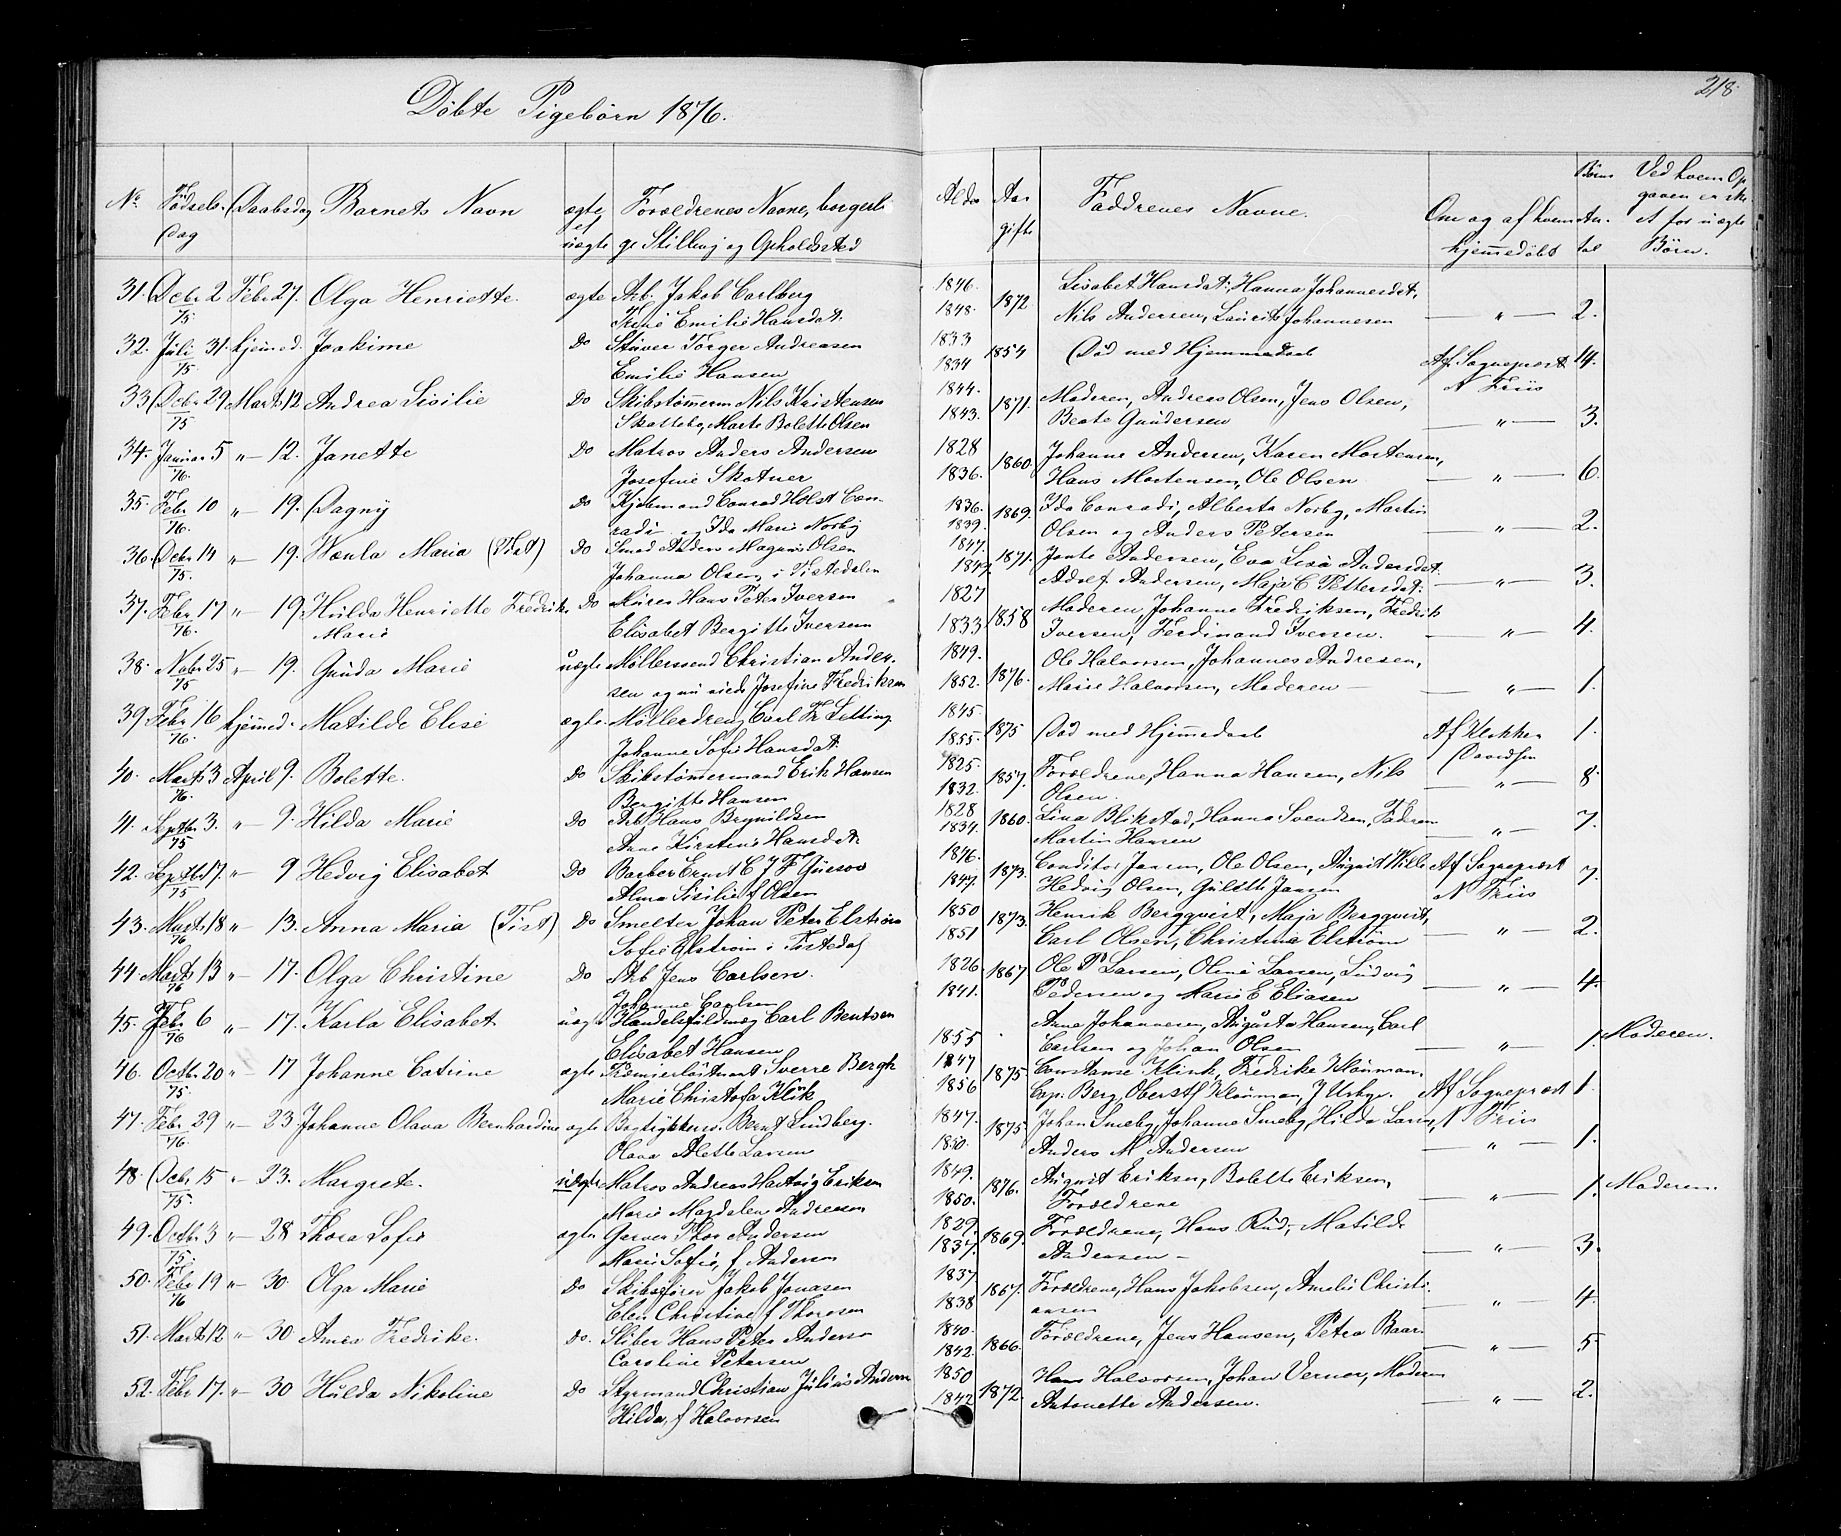 Döbte Pigebörn 1876.
218.
No. Fødsels-Dag Daabsdag Barnets Navn ægte el uægte Forældrenes Navne, borgerli-
ge Stilling og Opholdssted
Alder Aar gifte Faddrenes Navne. Om og af hvem hjemmedöbt Börns An-tal Ved hvem Op-
gaven er skeet for uægte Børn.
31. Decbr 2/75 Febr 27. Olga Henriette. ægte Arb. Jakob Carlberg 1846. 1872. Lisabet Hansdat:, Hanna Johannesdat,
Emilie Hansdat: 1848. Nils Andersen, Laurits Johannesen — " — 2.
32. Juli 31/75 hjemmed. Joakime Do Stuver Torger Andreasen 1833 1854 Död med Hjemmedaab Af Sognepræst 14.
Emilie Hansen 1834 N Friis
33 Decbr 29/75 Marts 12 Andrea Sisilie Do Skibstømmerm Nils Kristensen 1844. 1871. Moderen, Andreas Olsen, Jens Olsen,
Skolleby, Marte Bolette Olsen 1843. Beate Gundersen — " — 3.
34. Januar 5/76. " — 12. Janette Do Matros Anders Andersen 1828 1860. Johanne Andersen, Karen Mortensen,
Josefine Skotner 1836. Hans Mortensen, Ole Olsen — " — 6.
35. Febr 10/76. " — 19. Dagny Do Kjøbmand Conrad Holst Con- 1836. 1869. Ida Conradi, Alberta Norby, Martin
radi og Ida Marie Norby 1839. Olsen og Anders Petersen — " — 2.
36. Decbr 14/75. " — 19. Maria (Tist) Do Smed Anders Magnus Olsen 1847. 1871. Andersen, Eva Lisa Andersdat:
Johanna Olsen, i Tistedalen Adolf Andersen, Maja C Pettersdat: — " — 3.
37. Febr 17/76. " — 19. Hulda Henriette Fredrik. Do Murer Hans Peter Iversen 1827 1858 Moderen, Johanne Fredriksen, Fredrik
Marie Elisabet Bergitte Iversen 1833 Iversen, Ferdinand Iversen. — " — 4.
38. Novbr 25/75 " — 19. Gunda Marie uægte Møllersvend Christian Ander- 1849. 1876. Ole Halvorsen, Johannes Andresen,
sen og nu viede Josefine Fredriksen 1852. Marie Halvorsen, Moderen — " — 1.
39 Febr 16/76. hjemmed. Matilde Elise ægte. Mölledreng Carl Fr 1845 1875 Död med Hjemmedaab Af Klokker 1.
Johanne Sofie Hansdat: 1855. Davidsen
40. Marts 3/76 April 9. Bolette. Do Skibstømmermand Erik Hansen 1825. 1857. Forældrene, Hanna Hansen, Nils
Bergitte Hansen 1832. Olsen. — " — 8.
41. Septbr 3./75 " — 9. Hilda Marie Do Arb Hans Brynildsen 1828 1860. Lina Blikstad, Hanna Svendsen, Fadren
Anne Kirstine Hansdat: 1834. Martin Hansen — " — 7.
42. Septbr 17./75 " — 9 Hedvig Elisabet Do Barber Ernst C J F 1846. 1873. Conditor Jansen, Ole Olsen, August Wille Af Sognepræst 7.
Alma Sisilie f. Olsen 1847. Hedvig Olsen, Jansen N Friis
43. Marts 18/76 " — 13. Anna Maria (Tist) Do Smelter Johan Peter Elström 1850 1873. Henrik Bergqvist, Maja Bergqvist,
Sofie Elström i Tistedal 1851 Carl Olsen, Christina Elström — " — 2.
44 Marts 13/76 " — 17. Olga Christine Do Arb Jens Carlsen. 1826 1867 Ole P Larsen, Oline Larsen, Ludvig
Johanne Carlsen 1841. Pedersen og Marie E Eliasen — " — 4.
45. Febr 6/76 " — 17. Karla Elisabet uægte Handelsfuldmæg Carl Bentsen Anne Johannesen, Augusta Hansen, Carl
Elisabet Hansen 1855 Carlsen og Johan Olsen — " — 1. Moderen.
46. Octbr 20/75. " — 17 Johanne Catrine ægte Premierløitnant Sverre Bergh 1847 1875 Constanse Klinck, Fredrike
Marie Christofa Klink 1856 Cap: Berg, Oberstl J Af Sognepræst 1.
47. Febr 29/76. " — 23 Johanne Olava Bernhardine ægte Bogtrykkersv. Bernt Lindberg. 1847. 1875. Johan Smeby, Johanne Smeby, Hilda Larsen, N Friis
Olava Alette Larsen 1850. Anders M. Andersen " — 1.
48. Decbr 15/75. " — 23. Margrete. uægte Matros Andreas Hartvig Eriksen 1849. 1876. August Eriksen, Bolette Eriksen,
Marie Magdalene Andreasen 1850. Forældrene — " — 1. Moderen.
49. Octbr 3/75. " — 28 Thora Sofie ægte Garver Thor Andersen 1829. 1869. Forældrene, Hans Rud, Matilde
Marie Sofie, f. Andersen 1837. Andersen — — " — 3.
50. Febr 19/76 " — 30. Olga Marie Do Skibsfører Jakob Jonasen 1837 1867. Forældrene, Hans Jakobsen, Amelie Christi-
Elen Christine f. Thoresen 1838 ansen — " — 4.
51. Marts 12 " — 30 Anna Fredrike. Do. Hans Peter Anderse 1840. 1866. Forældrene, Jens Hansen, Petra Baar-
Caroline Petersen 1842. — " — 5
52. Febr 17. " — 30 Hulda Nikoline Do Styrmand Christian Julius Andersen 1850 1872. Hans Halvorsen, Johan Verner, Moderen
Hilda, f Halvorsen 1842 Antonette Andersen. — " — 2.